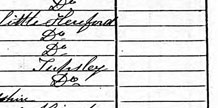 Do
Little Hereford
Do
Do
Tupsley
Do